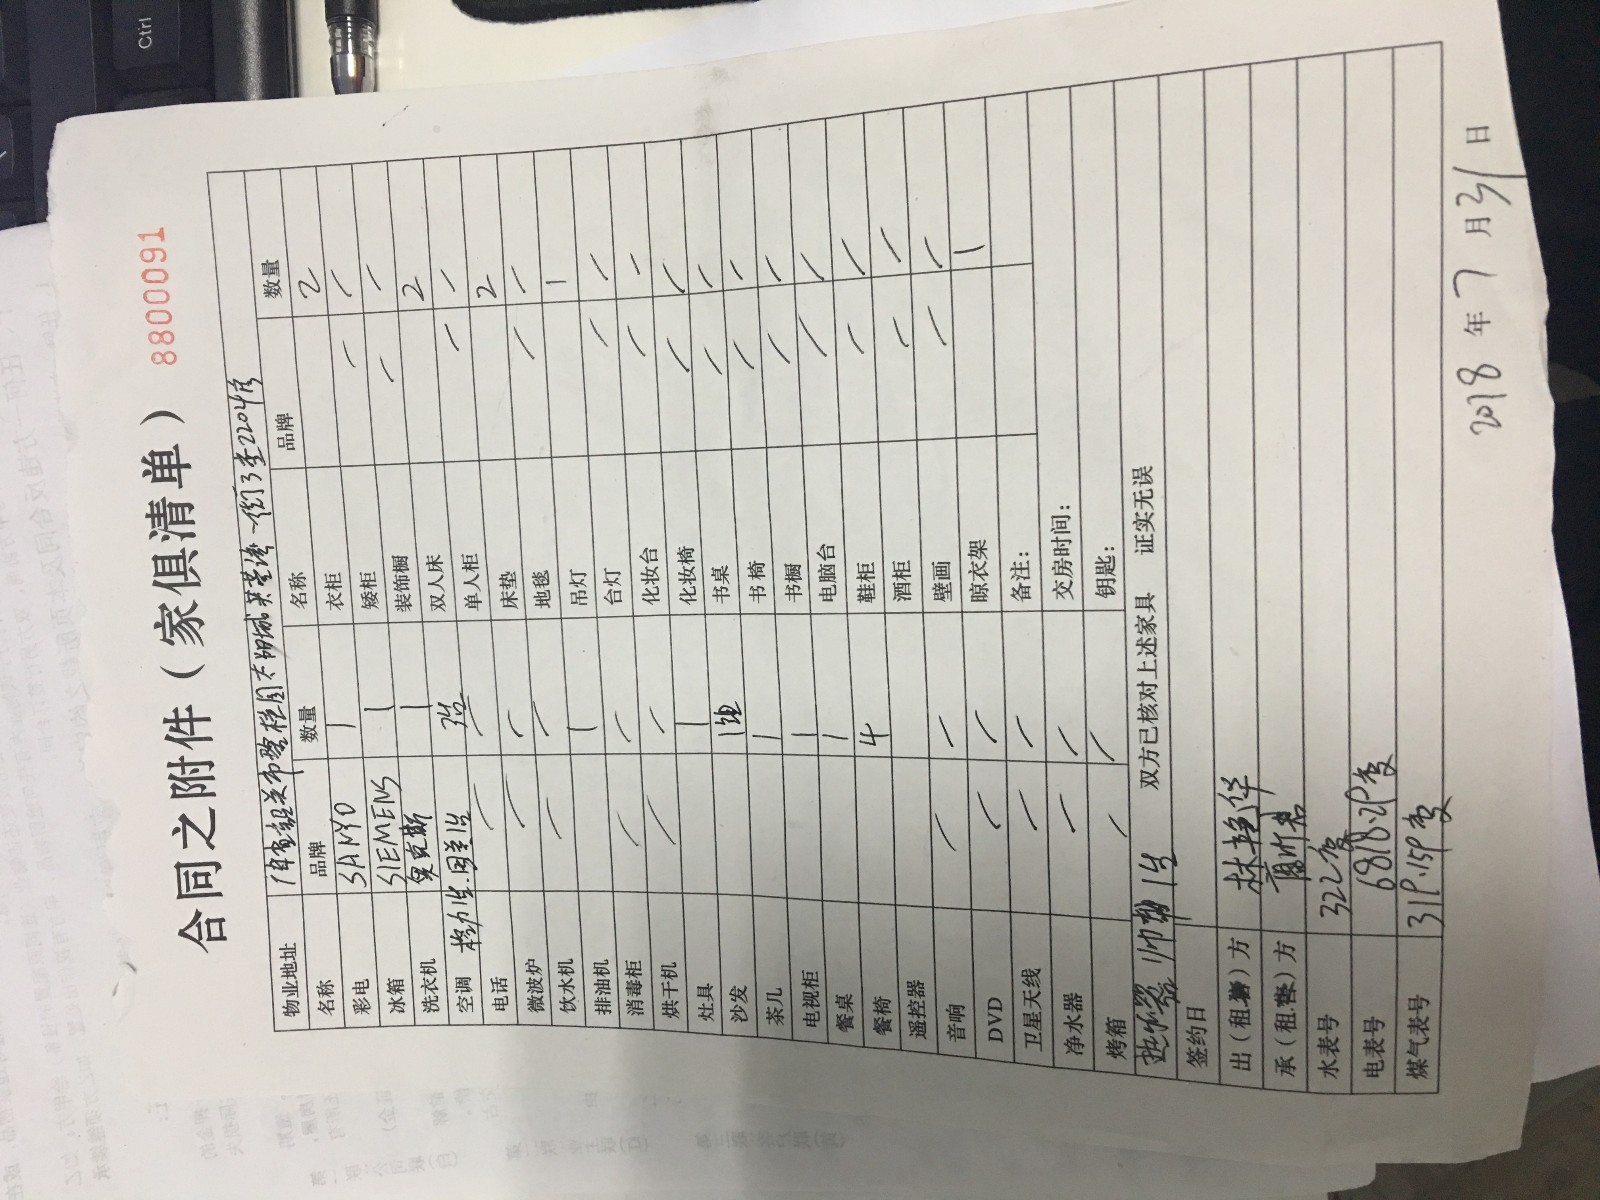 合同之附件（家俱清单） 8800091
物业地址 街3座2204房
名称 品牌 数量 名称 品牌 数量
彩电 SANYO 1 衣柜 2
冰箱 SIEMENS 1 矮柜 / /
洗衣机 奥克斯 1 装饰橱 / /
空调 格力 3台 双人床 2
电话 / / 单人柜 / /
微波炉 / / 床垫 2
饮水机 / / 地毯 / /
排油机 1 吊灯 1
消毒柜 / / 台灯 / /
烘干机 / / 化妆台 / /
灶具 1 化妆椅 / /
沙发 1组 书桌 / /
茶几 1 书椅 / /
电视柜 1 书橱 / /
餐桌 1 电脑台 / /
餐椅 4 鞋柜 / /
遥控器 酒柜 / /
音响 / / 壁画 / /
DVD / / 晾衣架 1
卫星天线 / / 备注：
净水器 / / 交房时间：
烤箱 / / 钥匙：
热水器 1台 双方已核对上述家具 证实无误
签约日
出（租）方 林艳华
承（租）方
水表号 322度
电表号 度
煤气表号 度
2018 年 7 月 31 日
Ctrl